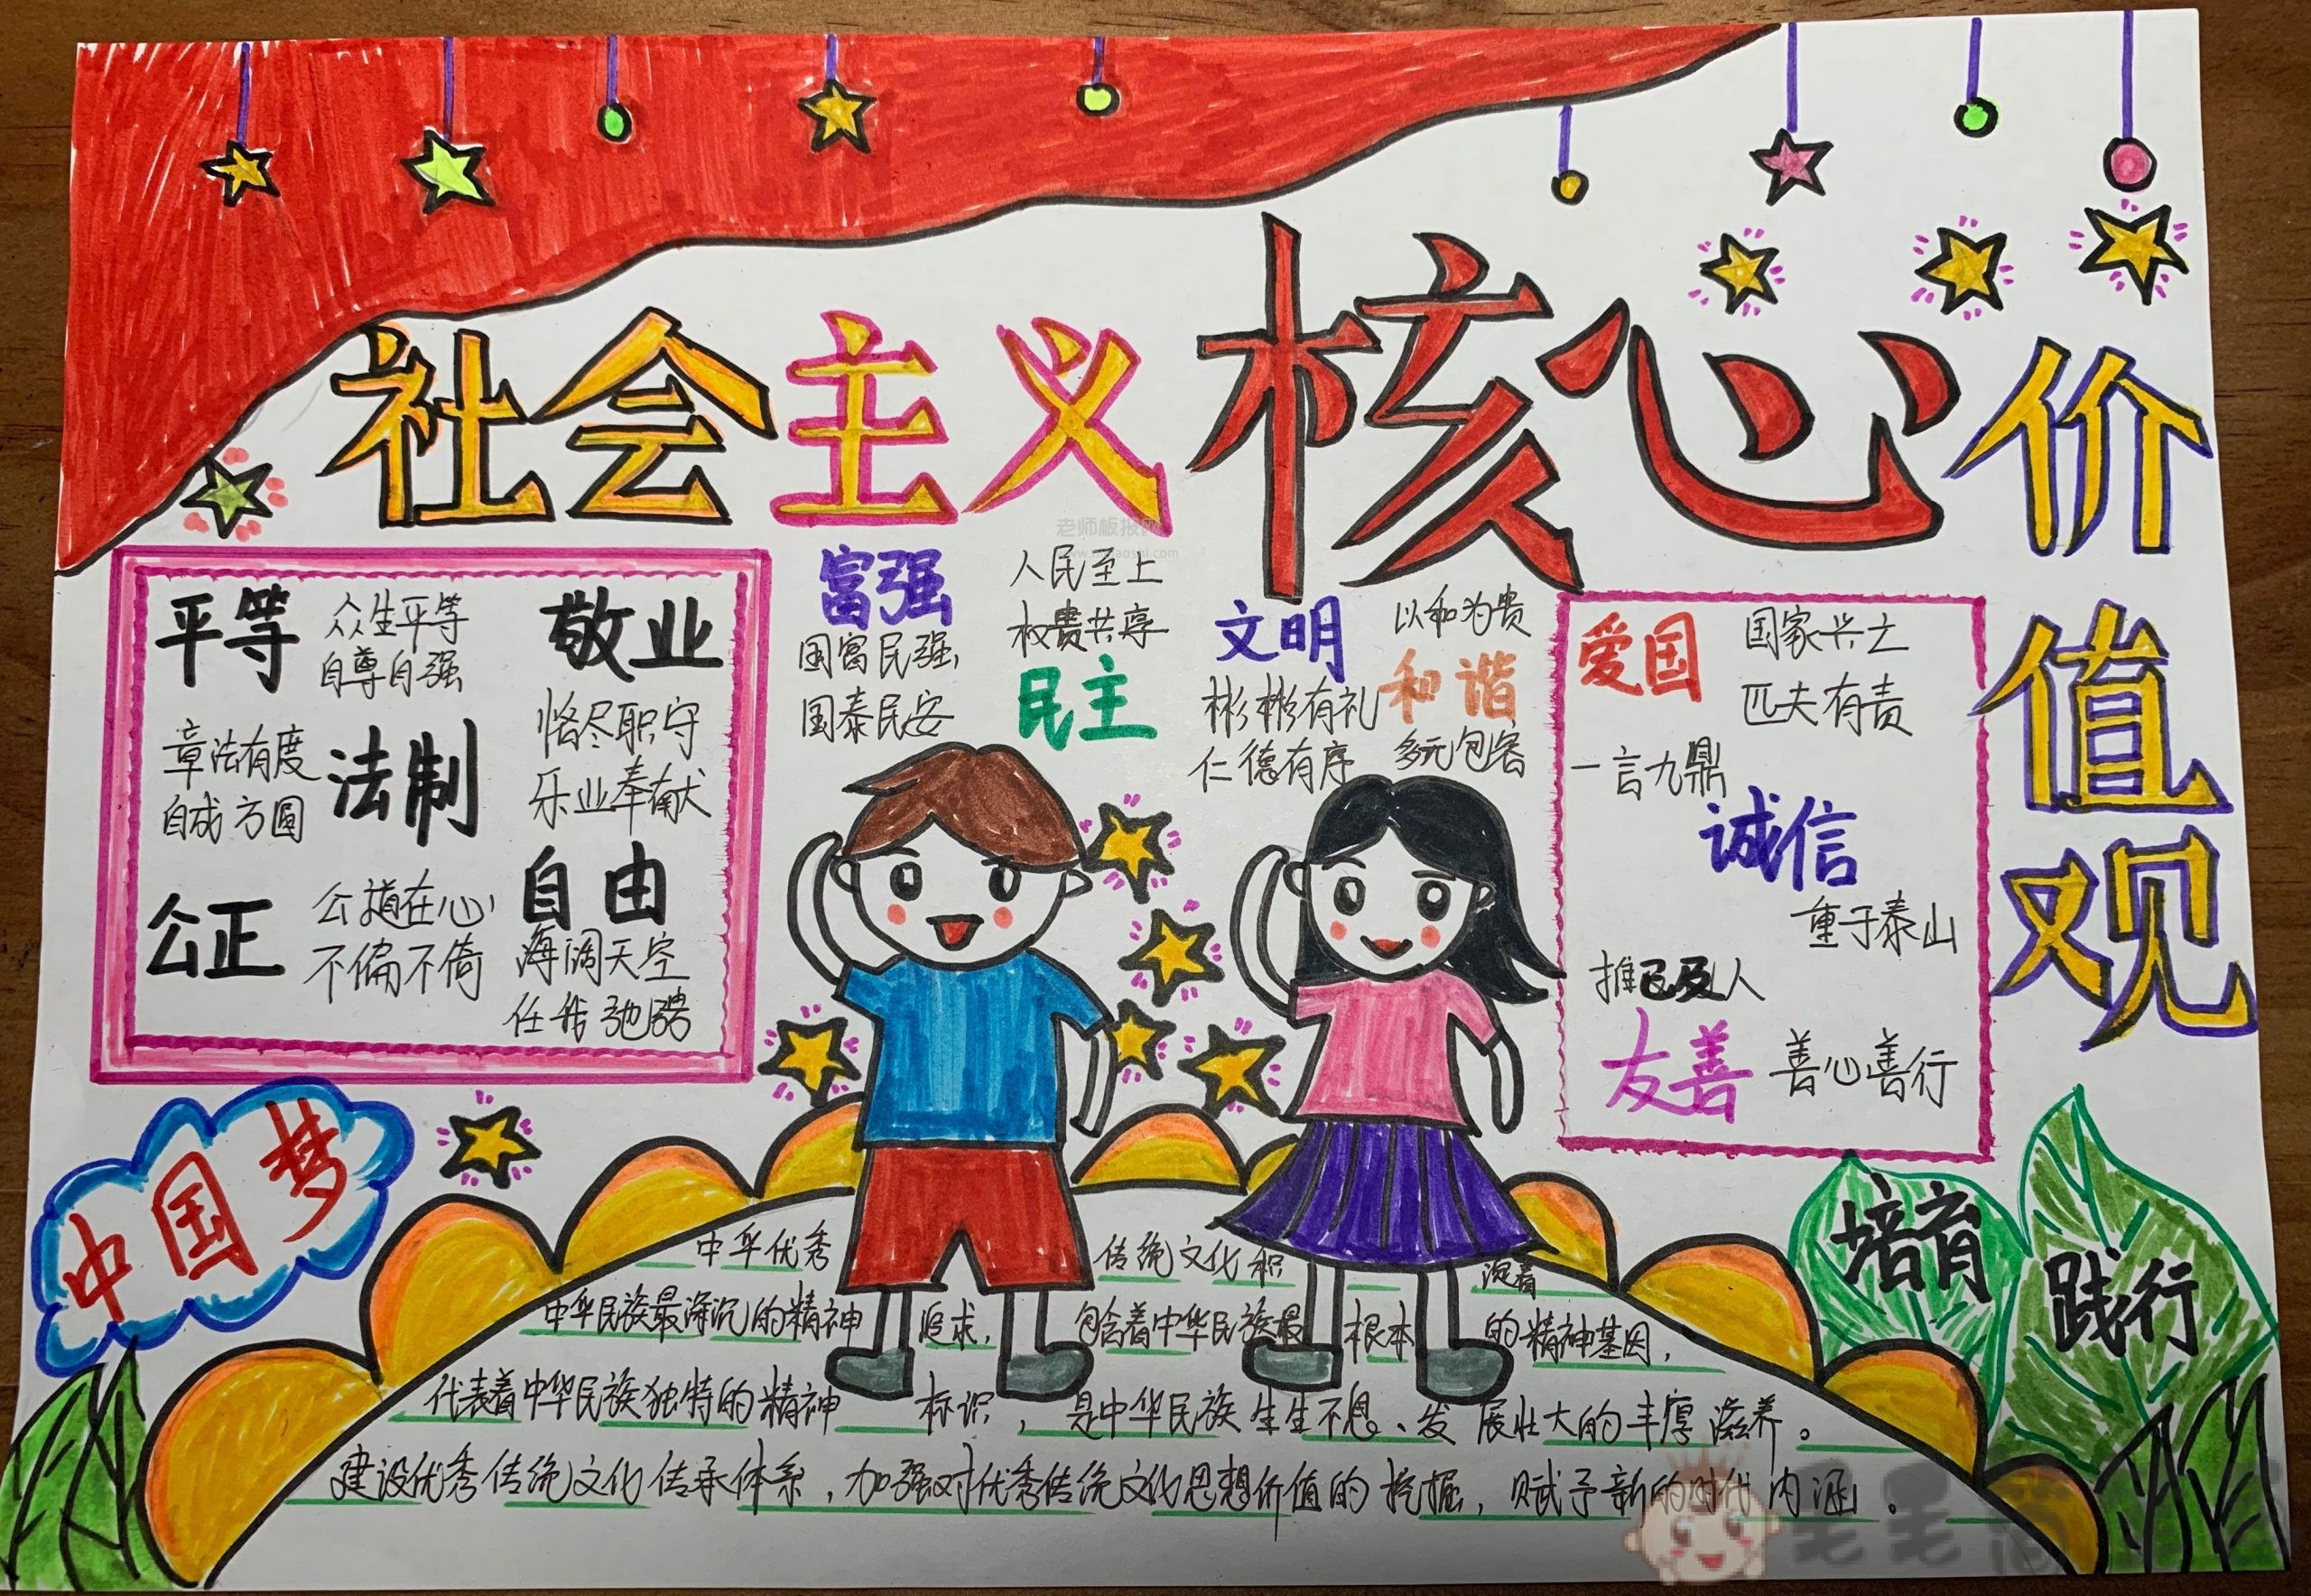 社会主义核心价值观
老师板报网
平等
众生平等
自尊自强
敬业
恪尽职守
乐业奉献
章法有度
自成方圆
法制
公正
公道在心
不偏不倚
自由
海阔天空
任我驰骋
富强
国富民强,
国泰民安
人民至上
权贵共享
民主
文明
彬彬有礼
仁德有序
以和为贵
和谐
多元包容
爱国
国家兴亡
匹夫有责
一言九鼎
诚信
重于泰山
推己及人
友善
善心善行
中国梦
培育
践行
中华优秀传统文化积沉着
中华民族最深沉的精神追求,包含着中华民族最根本的精神基因,
代表着中华民族独特的精神标识,是中华民族生生不息、发展壮大的丰厚滋养。
建设优秀传统文化传承体系,加强对优秀传统文化思想价值的挖掘,赋予新的时代内涵。